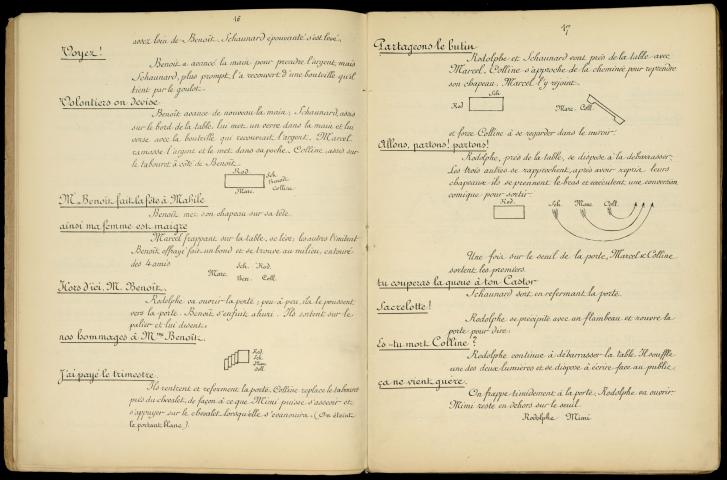 16
assez loin de Benoît. Schaunard épouvanté s'est levé.
Voyez!
Benoît a avancé la main pour prendre l'argent, mais
Schaunard, plus prompt, l'a recouvert d'une bouteille qu'il
tient par le goulot.
Volontiers on devise
Benoît avance de nouveau la main; Schaunard, assis
sur le bord de la table, lui met un verre dans la main et lui
verse avec la bouteille qui recouvrait l'argent. Marcel
ramasse l'argent et le met dans sa poche. Colline, assis sur
le tabouret à côté de Benoît.
Rod.
Sch.
Benoît
Colline
Marc.
M. Benoît fait la fête à Mabile
Benoît met son chapeau sur sa tête.
ainsi ma femme est maigre
Marcel frappant sur la table, se lève; les autres l'imitent
Benoît effrayé fait un bond et se trouve au milieu, entouré
des 4 amis
Sch. Rod.
Marc.
Ben. Coll.
Hors d'ici, M. Benoît.
Rodolphe va ouvrir la porte; peu à peu, ils le poussent
vers la porte. Benoît s'enfuit ahuri. Ils sortent sur le
palier et lui disent:
nos hommages à Mme Benoît.
Rod.
Sch.
Marc.
Coll.
J'ai payé le trimestre.
Ils rentrent et referment la porte. Colline replace le tabouret
près du chevalet, de façon à ce que Mimi puisse s'asseoir et
s'appuyer sur le chevalet lorsqu'elle s'évanouira. (On éteint
le portant blanc).
17
Partageons le butin
Rodolphe et Schaunard vont près de la table avec
Marcel. Colline s'approche de la cheminée pour reprendre
son chapeau. Marcel l'y rejoint
Sch.
Rod
Marc. Coll.
et force Colline à se regarder dans le miroir.
Allons, partons! partons!
Rodolphe, près de la table, se dispose à la débarrasser.
Les trois autres se rapprochent, après avoir repris leurs
chapeaux ils se prennent le bras et exécutent une conversion
comique pour sortir.
Rod.
Sch. Marc. Coll.
Une fois sur le seuil de la porte, Marcel & Colline
sortent les premiers.
tu couperas la queue à ton Castor
Schaunard sort en refermant la porte.
Sacrelotte!
Rodolphe se précipite avec un flambeau et rouvre la
porte pour dire:
Es-tu mort Colline?
Rodolphe continue à débarrasser la table. Il souffle
une des deux lumières et se dispose à écrire face au public.
ça ne vient guère.
On frappe timidement à la porte; Rodolphe va ouvrir
Mimi reste en dehors sur le seuil.
Rodolphe Mimi